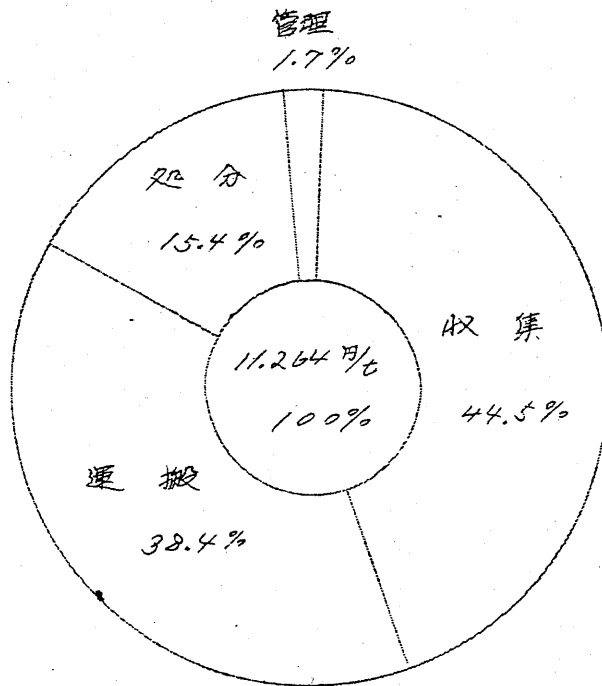 管理
1.7%
処分
15.4%
収集
44.5%
11.264円/t
100%
運搬
38.4%